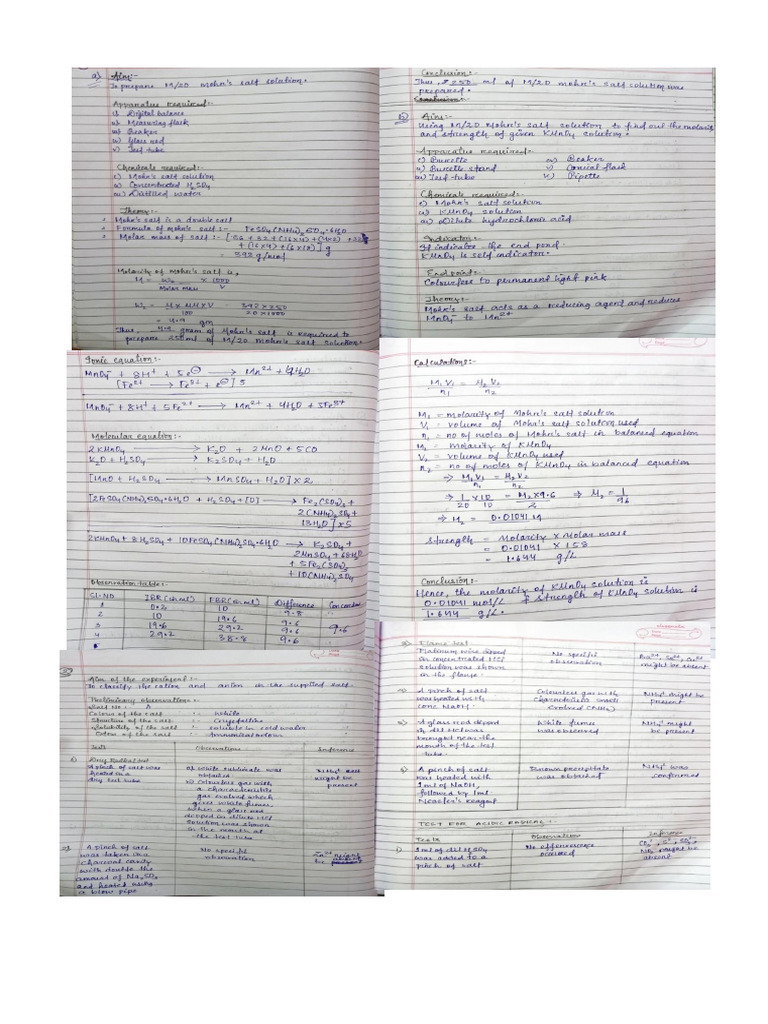 a) Aim:-
To prepare M/20 Mohr's salt solution.
Apparatus required:-
i) Digital balance
ii) Measuring flask
iii) Beaker
iv) Glass rod
v) Test tube
Chemicals required:-
i) Mohr's salt solution
ii) Concentrated H2SO4
iii) Distilled water
Theory:-
Mohr's salt is a double salt
Formula of mohr's salt :- FeSO4(NH4)2SO4.6H2O
Molar mass of salt :-
= 392 g/mol
Molarity of Mohr's salt is,
M = W2 / Molar mass × 1000 / V
= 4.9 gm
Thus, 4.9 gram of Mohr's salt is required to
prepare 250ml of M/20 Mohr's salt solution.
Conclusion:-
Thus, 250 ml of M/20 mohr's salt solution was
prepared.
Conclusion:-
b) Aim:-
Using M/20 Mohr's salt solution to find out the molarity
and strength of given KMnO4 solution.
Apparatus required:-
i) Burette iv) Beaker
ii) Burette stand v) Conical flask
iii) Test-tube v) Pipette
Chemicals required:-
i) Mohr's salt solution
ii) KMnO4 solution
iii) Dilute hydrochloric acid
Indicator:-
It indicates the end
KMnO4 is self indicator.
End point:-
Colourless to permanent light pink
Theory:-
Mohr's salt acts as a reducing agent and reduces
MnO4- to Mn2+
Ionic equation:-
MnO4- + 8H+ + 5e- → Mn2+ + 4H2O
[Fe2+ → Fe3+ + e-] 5
MnO4- + 8H+ + 5Fe2+ → Mn2+ + 4H2O + 5Fe3+
Molecular equation:-
2KMnO4 → K2O + 2MnO + 5[O]
K2O + H2SO4 → K2SO4 + H2O
[MnO + H2SO4 → MnSO4 + H2O] × 2
[2FeSO4(NH4)2SO4.6H2O + H2SO4 + [O] → Fe2(SO4)3 +
2(NH4)2SO4 +
13H2O] × 5
2KMnO4 + 8H2SO4 + 10FeSO4(NH4)2SO4.6H2O → K2SO4 +
2MnSO4 + 68H2O
+ 5Fe2(SO4)3
+ 10(NH4)2SO4
Observation table:-
Sl.NO IBR (in ml) FBR (in ml) Difference Concordant
1 0.2 10 9.8
2 10 19.6 9.6
3 19.6 29.2 9.6 9.6
4 29.2 38.8 9.6
5
Calculations:-
M1V1 / n1 = M2V2 / n2
M1 = molarity of Mohr's salt solution
V1 = volume of Mohr's salt solution used
n1 = no of moles of Mohr's salt in balanced equation
M2 = molarity of KMnO4
V2 = volume of KMnO4 used
n2 = no of moles of KMnO4 in balanced equation
⇒ M1V1 / n1 = M2V2 / n2
⇒ 1/20 × 10/10 = M2 × 9.6 / 2 ⇒ M2 = 1/96
⇒ M2 = 0.01041 M
Strength = Molarity × Molar mass
= 0.01041 × 158
= 1.644 g/L
Conclusion:-
Hence, the molarity of KMnO4 solution is
0.01041 mol/L & strength of KMnO4 solution is
1.644 g/L.
Aim of the experiment :-
To classify the cation and anion in the supplied salt.
Preliminary observation:-
Salt No :- A
Colour of the salt :- White
Structure of the salt :- Crystalline
Solubility of the salt :- Soluble in cold water
Odour of the salt :- Ammoniacal odour
Test Observation Inference
1) Dry test tube test
A pinch of salt was
heated in a
dry test tube
a) White sublimate was
obtained
b) Colourless gas with
a characteristic
gas evolved which
gives white fumes
when a glass rod
dipped in dilute HCl
solution was shown
in the mouth of
the test tube
might be
present
2) A pinch of salt
was taken in a
charcoal cavity
with double the
amount of Na2CO3
and heated using
a blow pipe
No specific
observation
3) Flame test
Platinum wire dipped
in concentrated HCl
solution was shown
in the flame
No specific
observation
might be absent
4) A pinch of salt
was heated with
conc NaOH.
Colourless gas with
Characteristic smell
evolved (NH3)
NH4+ might be
present
5) A glass rod dipped
in dil HCl was
brought near the
mouth of the test
tube.
White fumes
was observed
NH4+ might
be present
6) A pinch of salt
was heated with
1ml of NaOH,
followed by 1ml
Nessler's reagent
Brown precipitate
was obtained
NH4+ was
confirmed
TEST FOR ACIDIC RADICAL :-
Tests Observation Inference
1) 1ml of dil H2SO4
was added to a
pinch of salt
No effervescence
occured
might be
absent